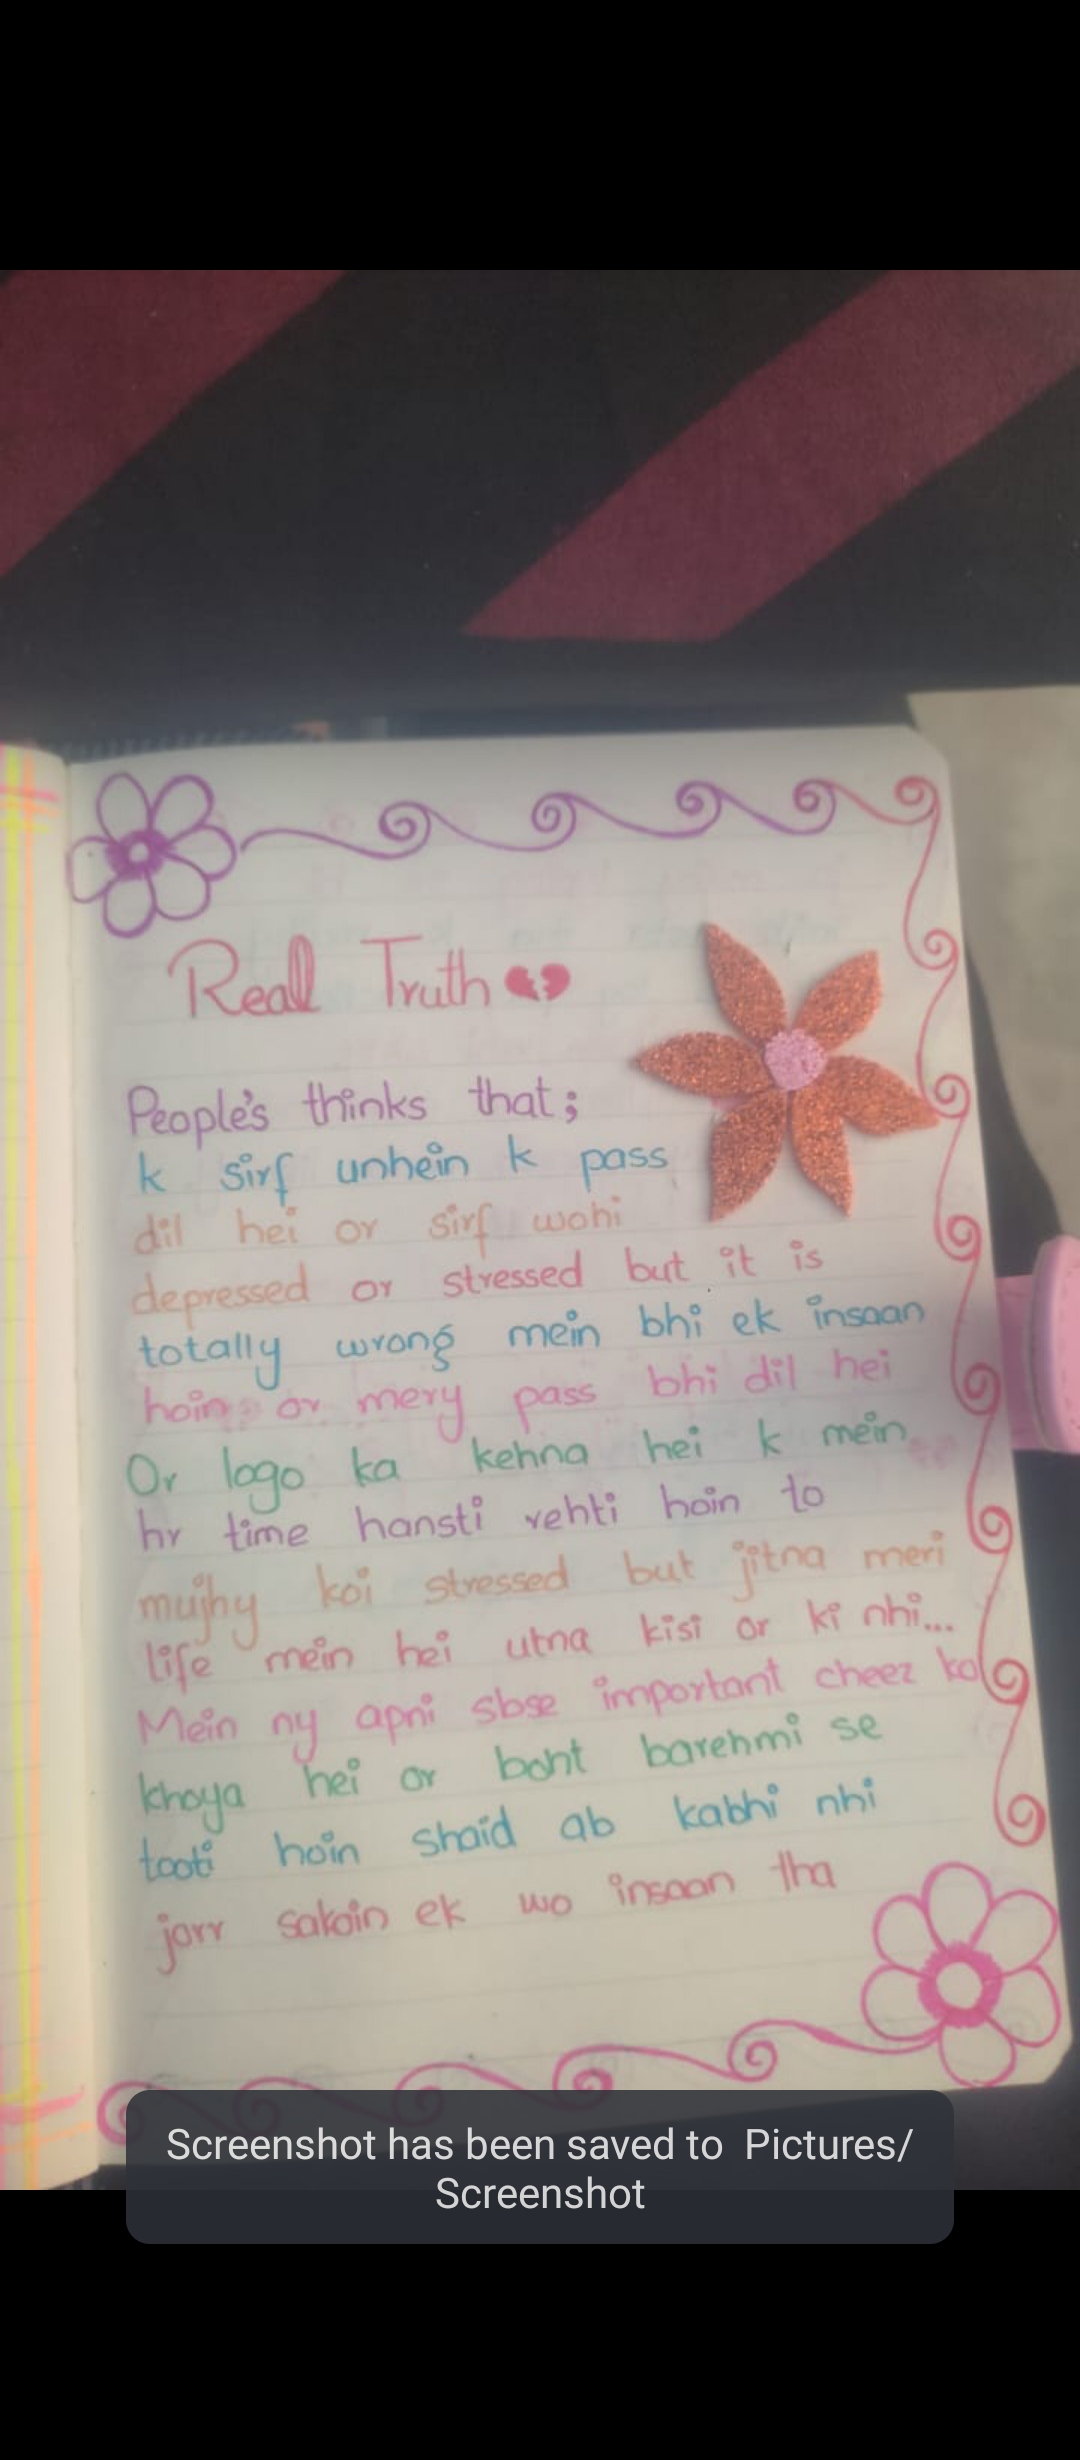 Reall Truth
People's thinks that;
k sirf unhein k pass
dil hei or sirf wohi
depressed or stressed but it is
totally wrong mein bhi ek insaan
hoin or mery pass bhi dil hei
Or logo ka kehna hei k mein
hr time hansti rehti hoin to
mujhy koi stressed but jitna meri
life mein hei utna kisi or ki nhi...
Mein ny apni sbse important cheez ko
khoya hei or boht barehmi se
tooti hoin shaid ab kabhi nhi
jorr sakoin ek wo insaan tha
Screenshot has been saved to Pictures/
Screenshot